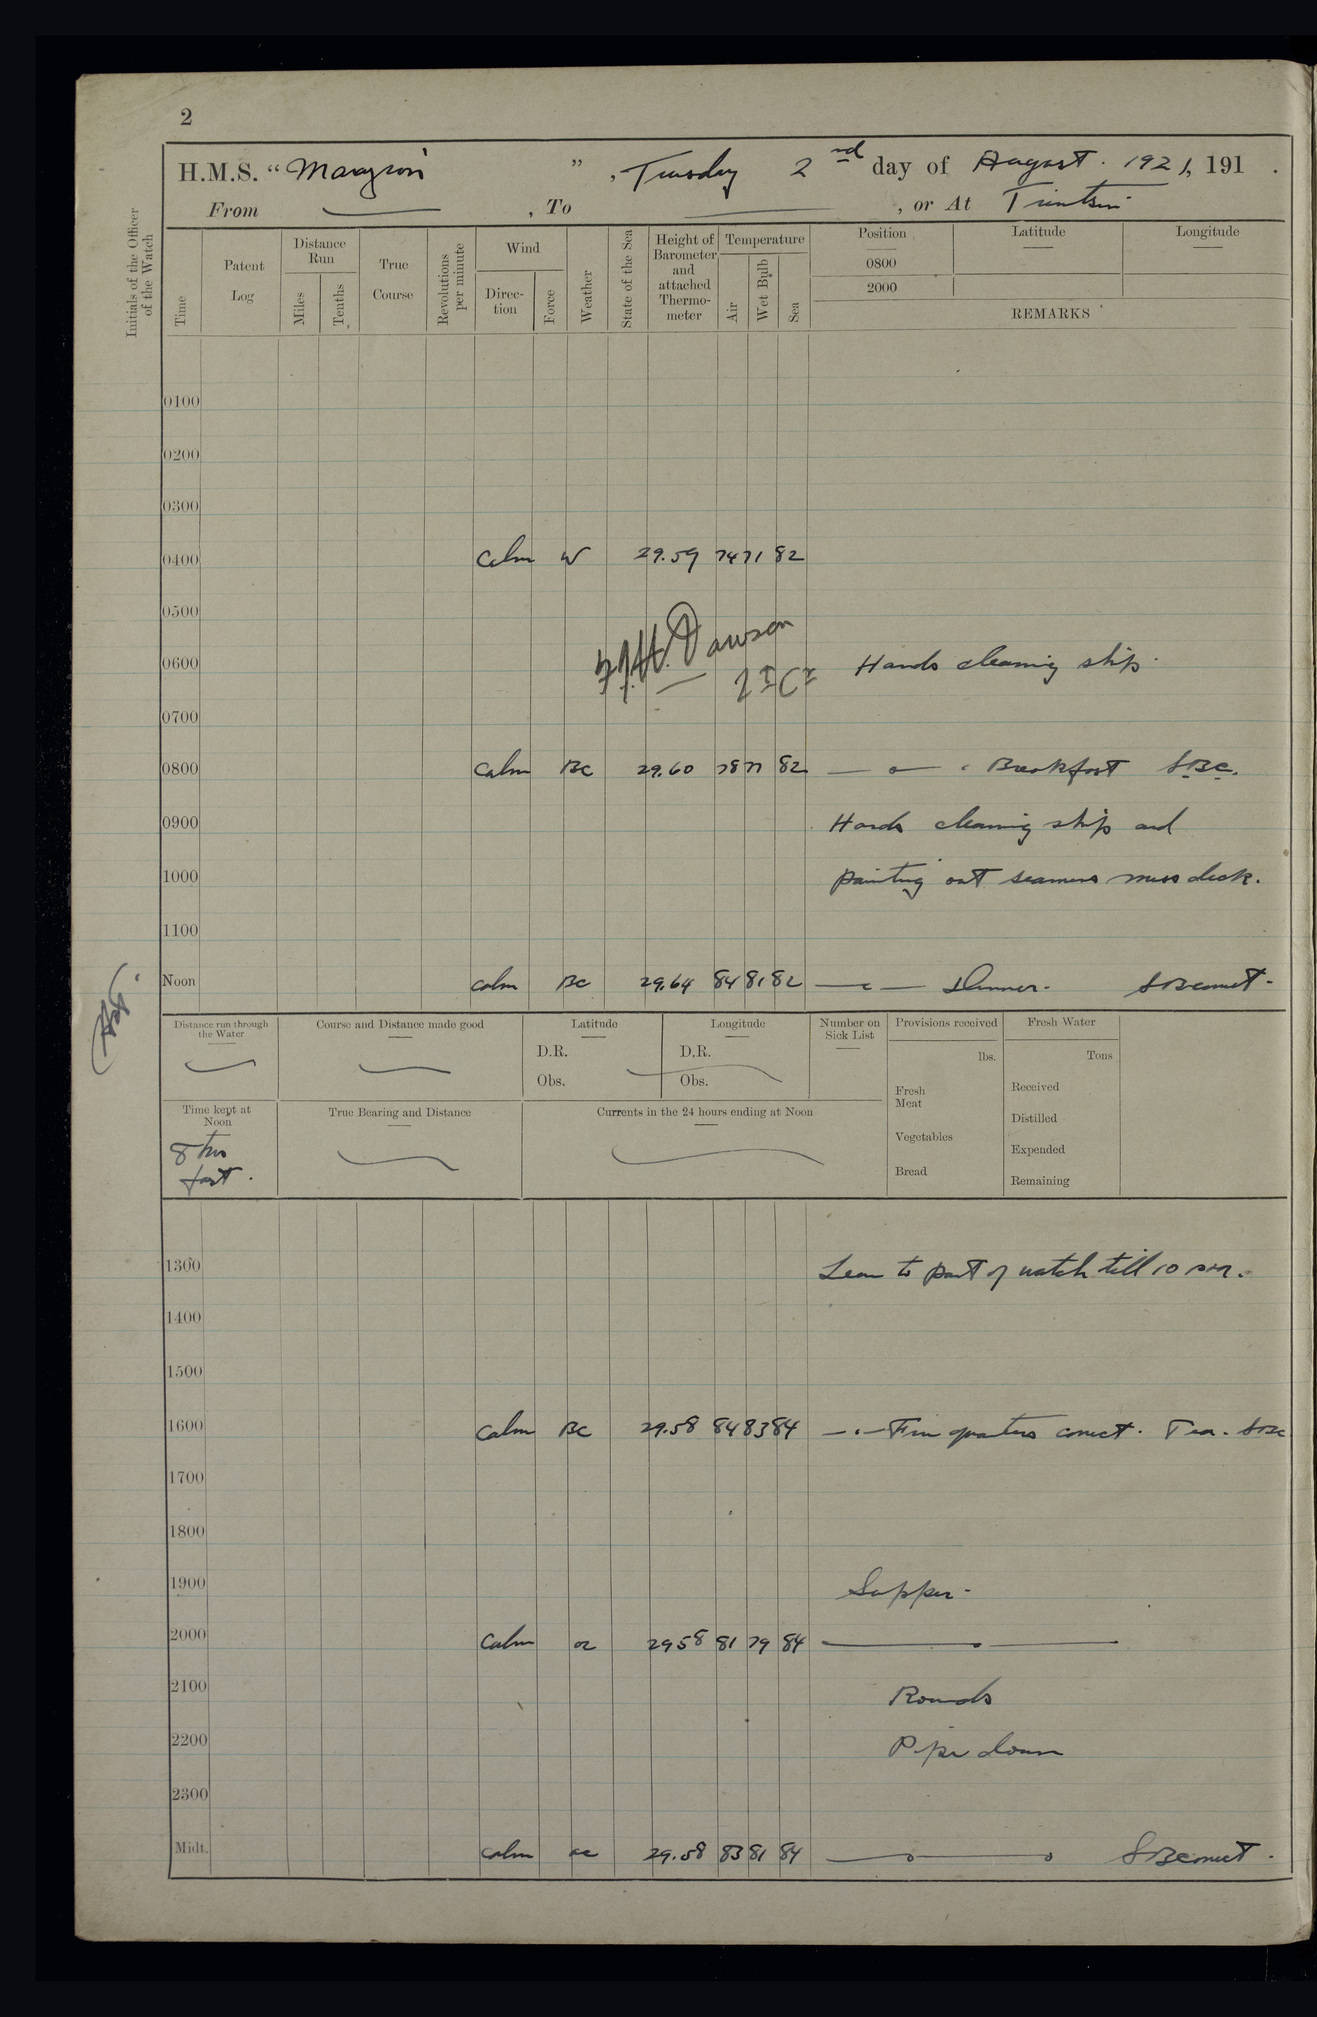 2
H.M.S. “Marazion”, Tuesday 2nd day of August. 1921, 191 .
From , To , or At Tientsin
Initials of the Officer of the Watch
Time
Patent Log
Distance Run
Miles
Tenths
True Course
Revolutions per minute
Wind
Direc-tion
Force
Weather
State of the Sea
Height of Barometer and attached Thermo-meter
Temperature
Air
Wet Bulb
Sea
Position
Latitude
Longitude
0800
2000
REMARKS
0100
0200
0300
0400 Calm W 29.59 74 71 82
0500
Dawson
0600 Hands cleaning ship.
0700
0800 Calm BC 29.60 78 77 82 Breakfast SBC.
0900 Hands cleaning ship and
1000 painting out seamens mess deck.
1100
Noon Calm BC 29.64 84 81 82 Dinner.
Distance run through the Water
Course and Distance made good
Latitude
Longitude
D.R.
D.R.
Obs.
Obs.
Number on Sick List
Provisions received
lbs.
Fresh Meat
Vegetables
Bread
Fresh Water
Tons
Received
Distilled
Expended
Remaining
Time kept at Noon
8 hrs
fast.
True Bearing and Distance
Currents in the 24 hours ending at Noon
1300 Leave to part of watch till 10 pm.
1400
1500
1600 Calm BC 29.58 84 83 84 Fire quarters correct. Tea. SBC
1700
1800
1900 Supper.
2000 Calm oc 29 58 81 79 84
2100 Rounds
2200 Pipe down
2300
Midt. Calm oc 29.58 83 81 84